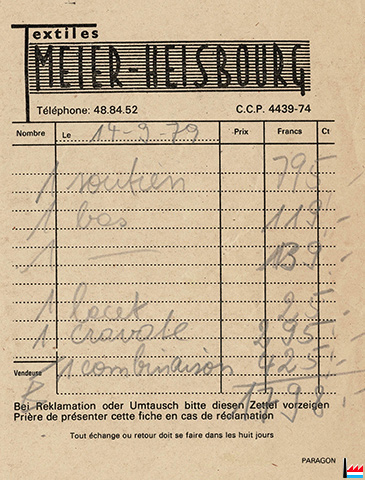 Textiles
MEIER-HEISBOURG
Téléphone: 48.84.52 C.C.P. 4439-74
Nombre Le 14-9-79 Prix Francs Ct
1 soutien 795
1 bas 119.-
1 — 139.-
1 lacet 25.-
1 cravate 295.-
1 combinaison 425.-
Vendeuse
1798.-
Bei Reklamation oder Umtausch bitte diesen Zettel vorzeigen
Prière de présenter cette fiche en cas de réclamation
Tout échange ou retour doit se faire dans les huit jours
PARAGON